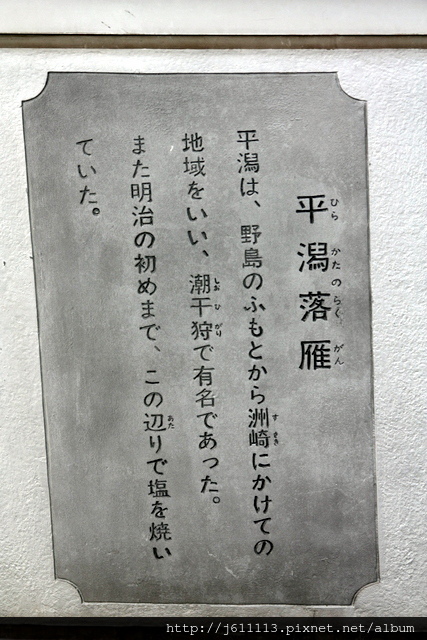 平潟落雁
ひらかたのらくがん
平潟は、野島のふもとから洲崎にかけての
すさき
地域をいい、潮干狩で有名であった。
しおひがり
また明治の初めまで、この辺りで塩を焼い
あた
ていた。
http://j611113.pixnet.net/album